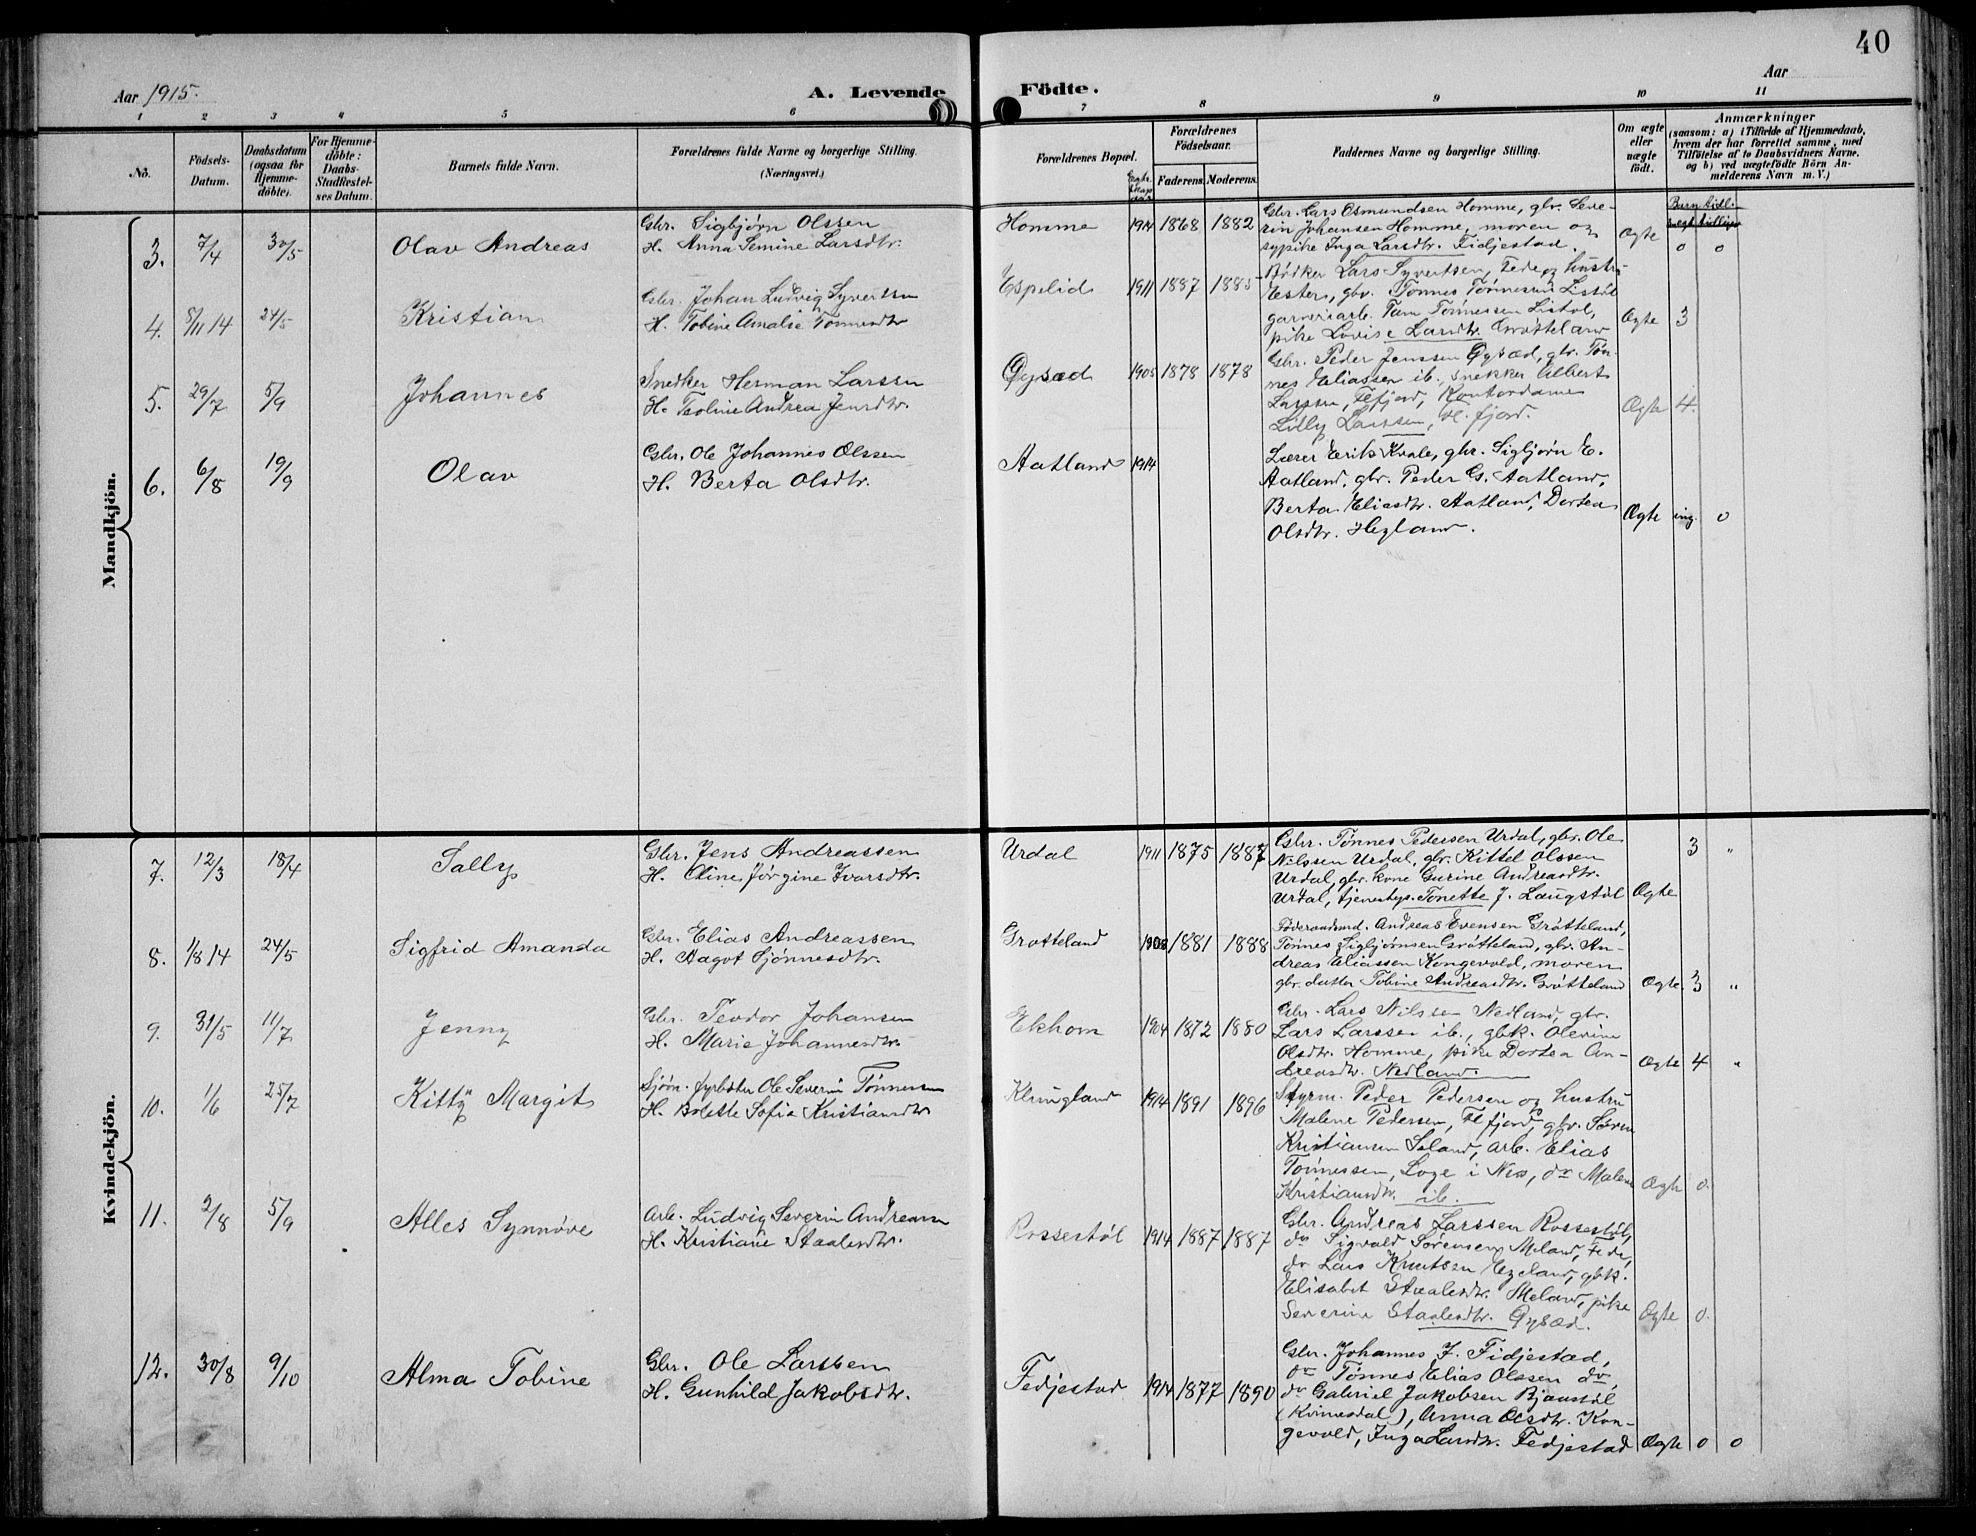 40
Aar 1915.
A. Levende Födte.
Aar
1 2 3 4 5 6 7 8 9 10 11
No.
Födsels-Datum.
Daabsdatum (ogsaa for Hjemmedöbte).
For Hjemmedöbte: Daabs-Stadfestelses Datum.
Barnets fulde Navn.
Forældrenes fulde Navne og borgerlige Stilling.
(Næringsvei.)
Forældrenes Bopæl.
Forældrenes Födselsaar.
Faderens. Moderens.
Faddernes Navne og borgerlige Stilling.
Om ægte eller uægte födt.
Anmærkninger
(saasom: a) i Tilfælde af Hjemmedaab, hvem der har forrettet samme, med Tilföielse af to Daabsvidners Navne. og b) ved uægtefödte Börn Anmelderens Navn m. V.)
Mandkjön.
3. 7/4 30/5 Olav Andreas
Gbr. Sigbjørn Olssen
H. Anna Semine Larsdtr.
Homme 1914 1868 1882
Gbr. Lars Osmundsen Homme, gbr. Seve-
rin Johansen Homme, moren og
sypike Inga Larsdtr. Fidjestad.
Ægte 0 0
4. 8/11 14 24/5 Kristian
Gbr. Johan Ludvig Syvertsen
H. Tobine Amalie Tønnesdtr
Espelid 1911 1887 1885
Bødker Lars Syvertsen, Fede og hustru
Ester, gbr. Tønnes Tønnessen Listøl
garveriarb. Tønnessen Listøl,
pike Lovise Larsdtr. Grøtteland
Ægte 3
5. 29/7 5/9 Johannes
Snedker Herman Larssen
H. Teoline Andrea Jensdtr.
Gysæd 1905 1878 1878
Gbr. Peder Jenssen Gysæd, gbr. Tøn-
nes Eliassen ib., snekker Albert
Larssen, Flfjord, Kontordame
Lilly Larssen, Fl.fjord.
Ægte 4.
6. 6/8 19/9 Olav
Gbr. Ole Johannes Olssen
H. Berta Olsdtr.
Aatland 1914
Lærer Erik Kvale, gbr. Sigbjørn E.
Aatland, gbr. Peder G. Aatland,
Berta Eliasdtr. Aatland, Dortea
Olsdtr. Hegland.
Ægte ing. 0
Kvindekjön.
7. 12/3 18/4 Sally
Gbr. Jens Andreassen
H. Eline Jørgine Ivarsdtr.
Urdal 1911 1875 1887
Gbr. Tønnes Pedersen Urdal, gbr. Ole
Nilssen Urdal, gbr. Kittel Olssen
Urdal, gbr. kone Gurine Andreasdtr.
Urdal, tjenestep. Tonette J. Laugstøl
Ægte 3 "
8. 1/8 14 24/5 Sigfrid Amanda
Gbr. Elias Andreassen
H. Aagot Sjønnesdtr.
Grøtteland 1908 1881 1888
Føderaadsmd. Andreas Evensen Grøtteland,
Tønnes Sigbjørnsen Grøtteland, gbr. An-
dreas Eliassen Kongevold, moren
gbr. datter Tobine Andreasdtr. Grøtteland
Ægte 3 "
9. 31/5 11/7 Jenny
Gbr. Teodor Johansen
H. Marie Johannesdtr.
Ekhom 1904 1872 1880
Gbr. Lars Nilssen Nedland, gbr.
Lars Larssen ib., gbk. Olevine
Olsdtr. Homme, pike Dortea An-
dreasdtr. Nedland.
Ægte 4 "
10. 1/6 25/7 Kitty Margit
Sjøm. fyrbøter Ole Severin Tønnessen
H. Bolette Sofie Kristiansdtr
Klungland 1914 1891 1896
Styrm. Peder Pedersen og hustru
Malene Pedersen, Flfjord, gbr. Søren
Kristiansen Seland, arb. Elias
Tønnessen, Loge i Nes, do Malene
Kristiansdtr. ib.
Ægte 0.
11. 2/8 5/9 Alles Synnøve
Arb. Ludvig Severin Andreassen
H. Kristiane Staalesdtr.
Rossestøl 1914 1887 1887
Gbr. Andreas Larssen Rossestøl,
do Sigvald Sørensen Meland, Fede,
do Lars Knutsen Egeland, gbk.
Elisabet Staalesdtr. Meland, pike
Severine Staalesdtr. Gysæd.
Ægte 0.
12. 30/8 9/10 Alma Tobine
Gbr. Ole Larssen
H. Gunhild Jakobsdtr.
Fedjestad 1914 1877 1890
Gbr. Johannes J. Fidjestad,
do Tønnes Elias Olssen do,
do Gabriel Jakobsen Bjaustøl
(Kvinesdal), Anna Olsdtr. Kon-
gevold, Inga Larsdtr. Fedjestad
Ægte 0 0